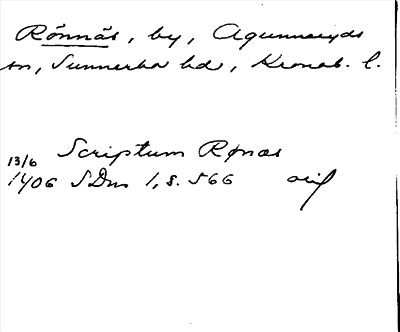 Rönnäs, by, Agunnaryds
sn, Sunnerbo hd, Kronob. l.
13/6 Scriptum Rønæs
1406 SDns 1, s. 566 orig